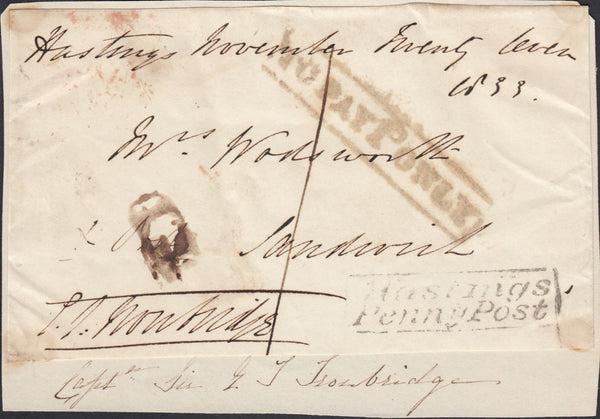 Hastings November Twenty Seven
1833.
TO PAY 1D ONLY
Mrs Wodsworth
1
Sandwich
Hastings
Penny Post
E.T. Troubridge
Captn Sir E T Troubridge